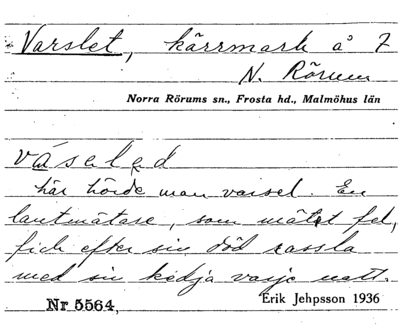 Varslet, kärrmark å 7
N. Rörum
Norra Rörums sn., Frosta hd., Malmöhus län
våseled
här hörde man varsel. En
lantmätare, som mätet fel,
fick efter sin död rassla
med sin kedja varje natt.
Nr 5564,
Erik Jehpsson 1936